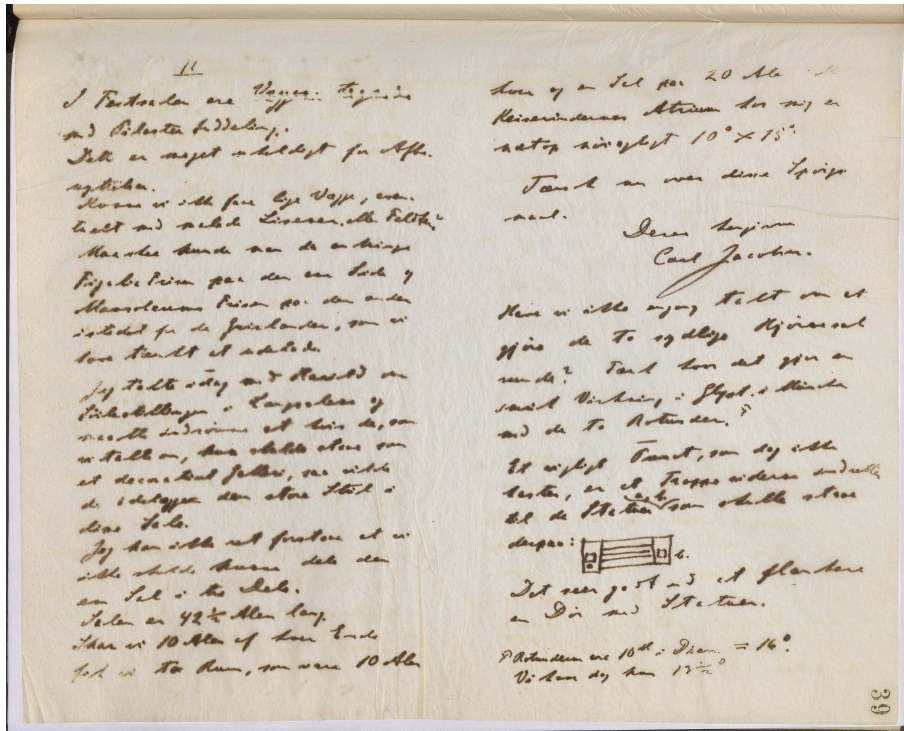 11
I Festsalen ere Vægge
med Pilaster Inddeling.
Dette er meget uheldigt for
Kunne vi ikke faae lige Vægge, even-
tuelt med malede Lisener, eller Felter?
Maaskee kunde man da anbringe
Figalia Frisen paa den ene Side og
Mausoleums Frisen paa den anden
istedet for de Guirlander, som vi
have tænkt at
Jeg talte idag med Harald om
i Langsalene og
at hvis de, som
vi talte om, skulde staae som
et decorativt Galleri, saa vilde
de ødelægge den store Stiil i
disse Sale.
Jeg kan ikke ret forstaae at vi
ikke skulde kunne dele den
ene Sal i tre Dele.
Salen er 42½ Alen lang.
Skar vi 10 Alen af hver Ende
fik vi to Rum, som vare 10 Alen
hver og en Sal paa 20 Alen
Keiserindernes Atrium hos mig er
netop nøiagtigt 10° × 15°.
Tænk nu over disse Spørgs-
maal.
Deres hengivne
Carl Jacobsen.
Have vi ikke engang talt om at
gjøre de to sydlige Hjørnesal
runde? Tænk hvor det gjør en
smuk Virkning i Glypt. i München
med de to Rotunder.
Et vigtigt Punct, som dog ikke
haster, er at Trappe
til de Statuer som skulle staae
derpaa: b.
Det seer godt ud at flankere
en Dør med Statuer.
Rotunderne ere i Diam = 16°.
Vi have dog kun 13½°
39